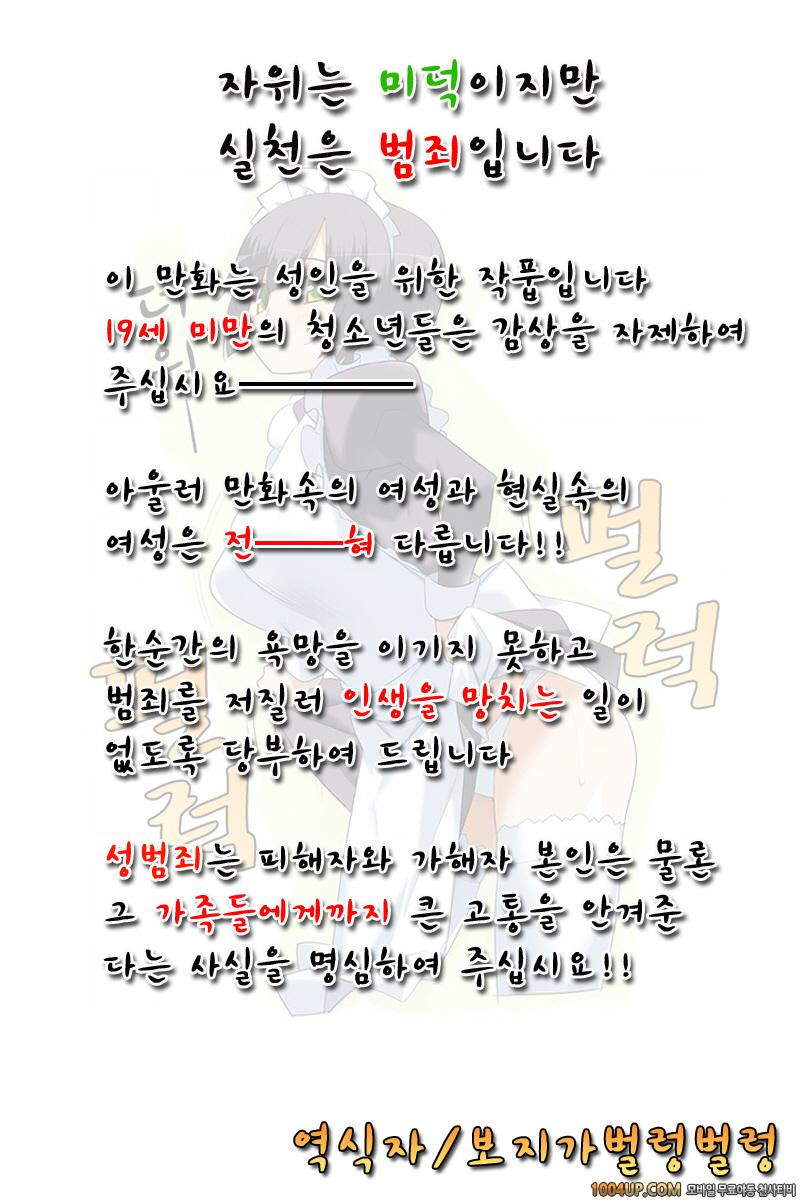 자위는 미덕이지만
실천은 범죄입니다
이 만화는 성인을 위한 작품입니다
19세 미만의 청소년들은 감상을 자제하여
주십시요――――
아울러 만화속의 여성과 현실속의
여성은 전――혀 다릅니다!!
한순간의 욕망을 이기지 못하고
범죄를 저질러 인생을 망치는 일이
없도록 당부하여 드립니다
성범죄는 피해자와 가해자 본인은 물론
그 가족들에게까지 큰 고통을 안겨준
다는 사실을 명심하여 주십시요!!
펄럭
펄럭
역식자/보지가벌렁벌렁
1004UP.COM 모바일 무료야동 천사티비